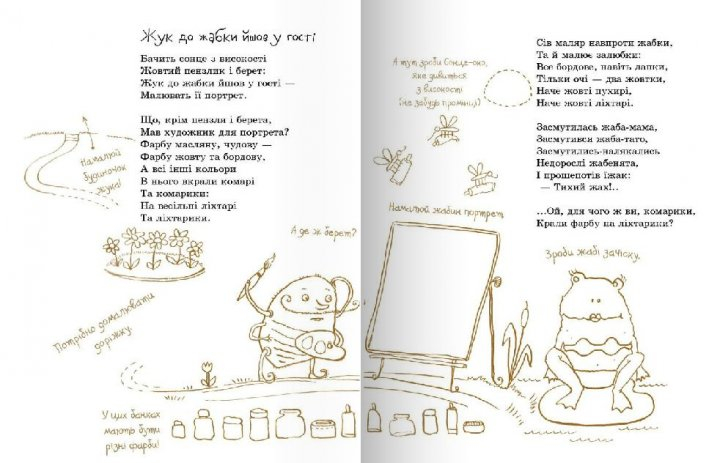 Жук до жабки йшов у гості
Бачить сонце з високості
Жовтий пензлик і берет:
Жук до жабки йшов у гості —
Малювать її портрет.
Що, крім пензля і берета,
Мав художник для портрета?
Фарбу масляну, чудову —
Фарбу жовту та бордову,
А всі інші кольори
В нього вкрали комарі
Та комарики:
На весільні ліхтарі
Та ліхтарики.
Намалюй
будиночок
жука!
А де ж берет?
Потрібно домалювати
доріжку.
У цих банках
мають бути
різні фарби!
А тут зроби Сонце-око,
яке дивиться
з високості
(на забудь промінці)
Намалюй жабин портрет
Сів маляр навпроти жабки,
Та й малює залюбки:
Все бордове, навіть лапки,
Тільки очі — два жовтки,
Наче жовті пухирі,
Наче жовті ліхтарі.
Засмутилась жаба-мама,
Засмутився жаба-тато,
Засмутились-налякались
Недорослі жабенята,
І прошепотів їжак:
— Тихий жах!..
...Ой, для чого ж ви, комарики,
Крали фарбу на ліхтарики?
Зроби жабі зачіску.